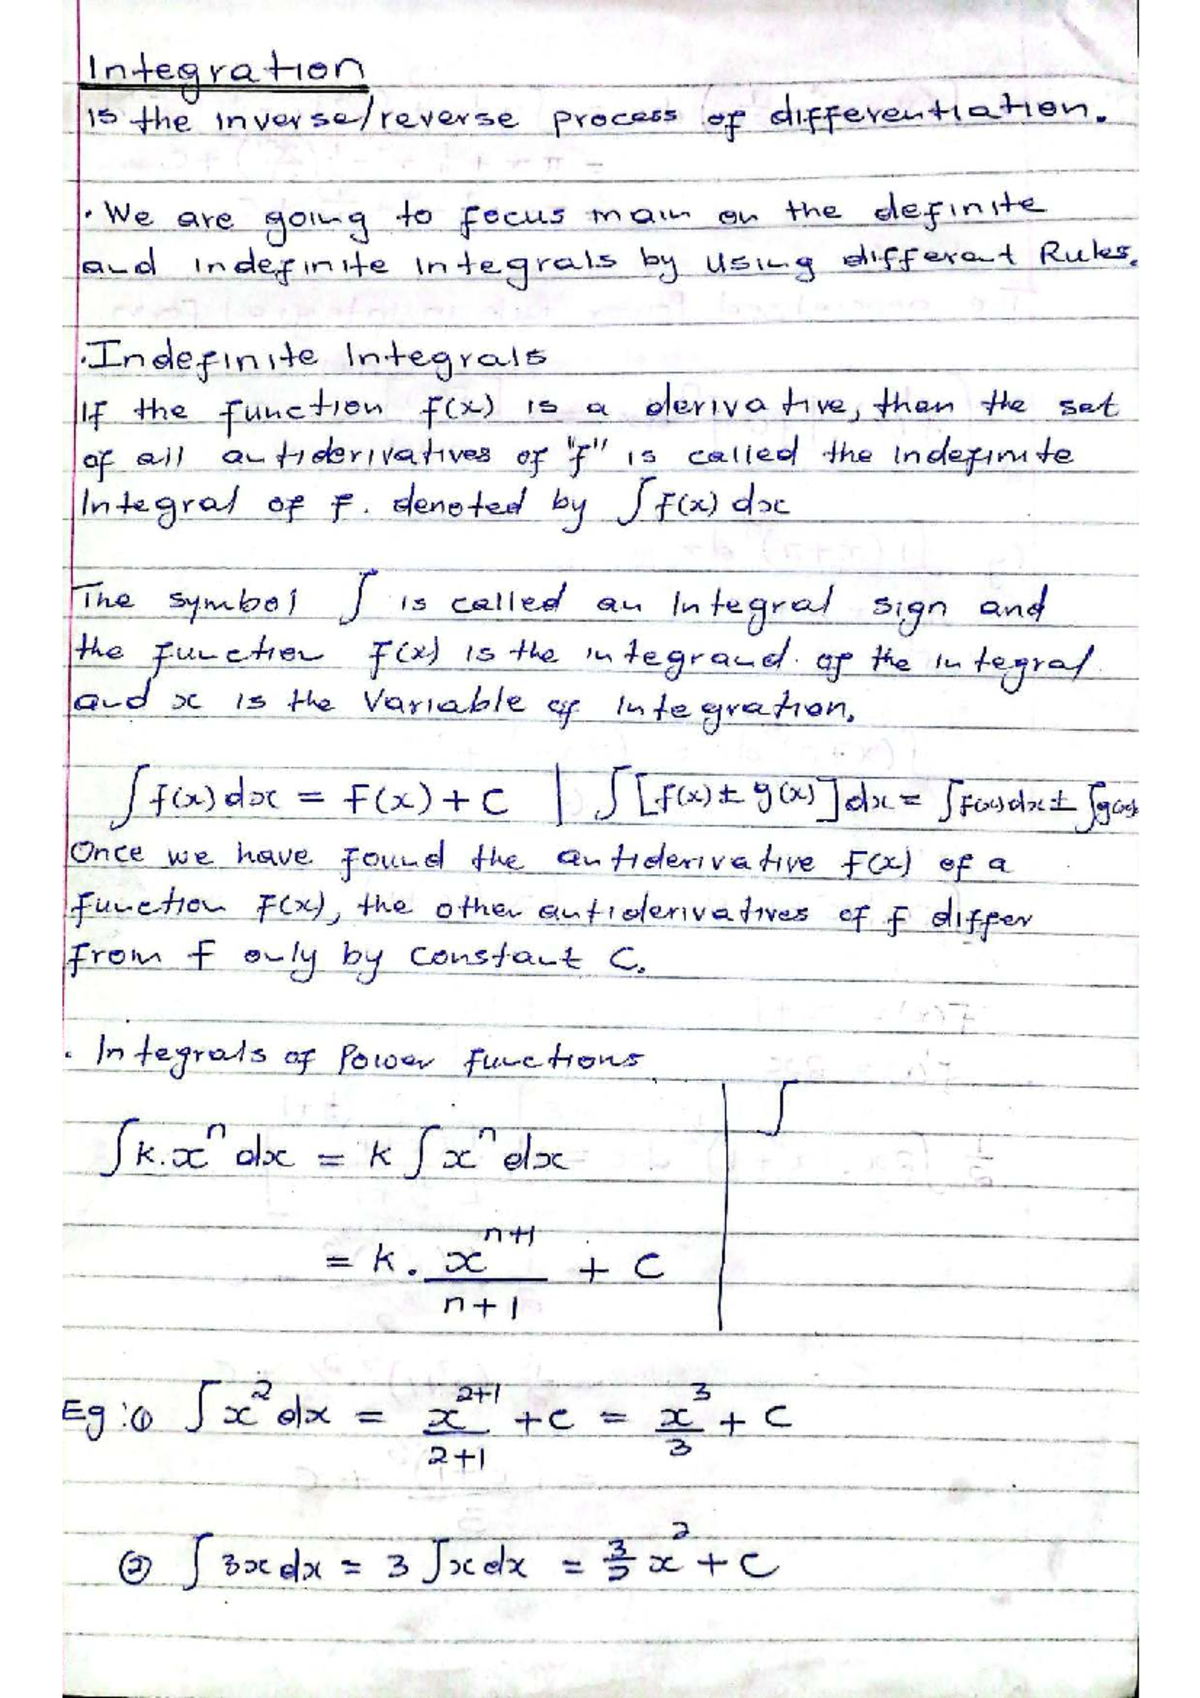 Integration
is the inverse/reverse process of differentiation.
· We are going to focus main on the definite
and indefinite integrals by using different Rules.
· Indefinite Integrals
If the function f(x) is a derivative, then the set
of all antiderivatives of "f" is called the indefinite
Integral of f. denoted by ∫ f(x) dx
The symbol ∫ is called an Integral sign and
the function f(x) is the integrand of the integral
and x is the Variable of integration.
∫ f(x) dx = F(x) + C | ∫ [f(x) ± g(x)] dx = ∫ f(x) dx ± ∫ g(x)
Once we have found the antiderivative F(x) of a
function F(x), the other antiderivatives of f differ
from f only by constant C.
· Integrals of Power functions
∫
∫ k.xⁿ dx = k ∫ xⁿ dx
= k . x^(n+1) / (n+1) + C
Eg : ① ∫ x² dx = x^(2+1) / (2+1) + C = x³ / 3 + C
② ∫ 3x dx = 3 ∫ x dx = 3/2 x² + C